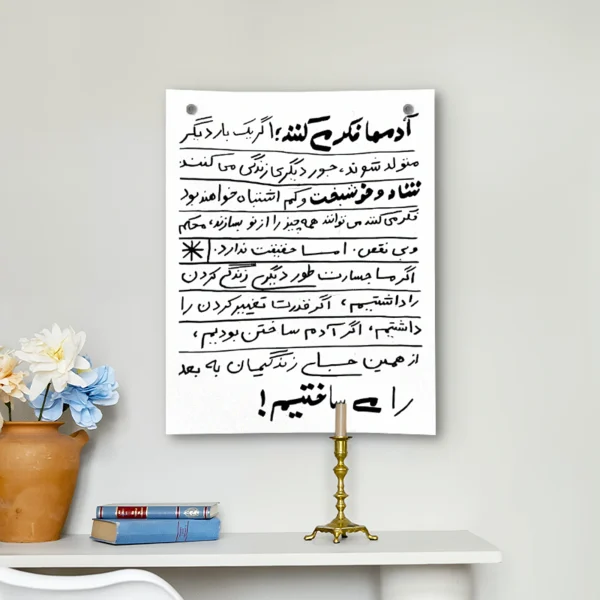 آدم‌ها فکر می‌کنند؛ اگر یک بار دیگر
متولد شوند، جور دیگری زندگی می‌کنند
شاد و خوشبخت و کم اشتباه خواهند بود
فکر می‌کنند می‌توانند همه چیز را از نو بسازند، محکم
و بی نقص. امــا حقیقت ندارد.
اگر ما جسارت طور دیگری زندگی کردن
را داشتیم، اگر قدرت تغییر کردن را
داشتیم، اگر آدم ساختن بودیم،
از همین جــای زندگیمان به بعد
را می ساختیم!